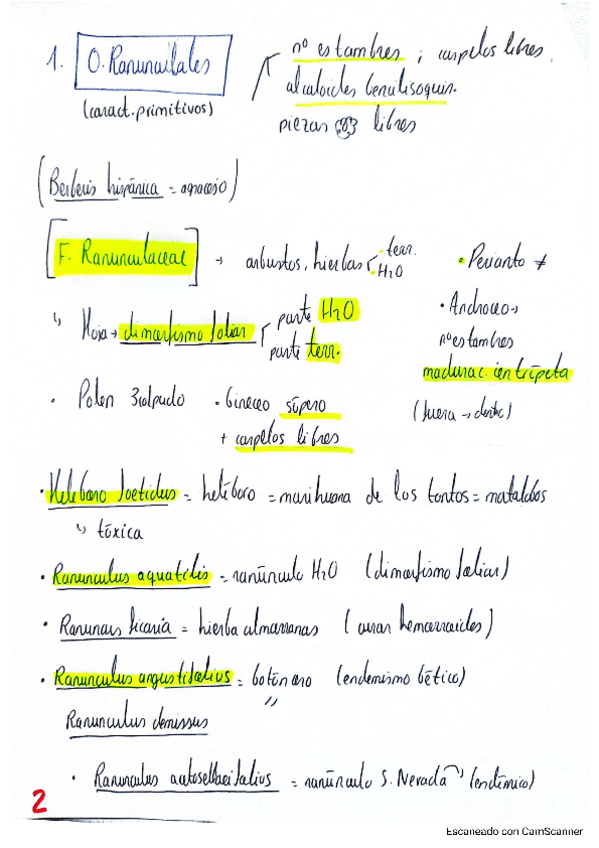 1. O. Ranunculales
(caract. primitivos)
nº estambres ; carpelos libres.
alcaloides bencilisoquin.
piezas libres
(Berberis hispánica = agracejo)
F. Ranunculaceae → arbustos, hierbas terr. H2O
• Perianto ≠
↳ Hoja → dimorfismo foliar parte H2O parte terr.
• Androceo →
nº estambres
madurac. centrípeta
(fuera → dentro)
• Polen 3colpado • Gineceo súpero
+ carpelos libres
• Heleboro foetidus = heléboro = marihuana de los tontos = matalobos
↳ tóxica
• Ranunculus aquatilis = ranúnculo H2O (dimorfismo foliar)
• Ranuncus ficaria = hierba almorranas (curar hemorroides)
• Ranunculus angustifolius = botón oro (endemismo bético)
Ranunculus demissus "
• Ranunculus acetosellaeifolius = ranúnculo S. Nevada → (endémico)
2
Escaneado con CamScanner